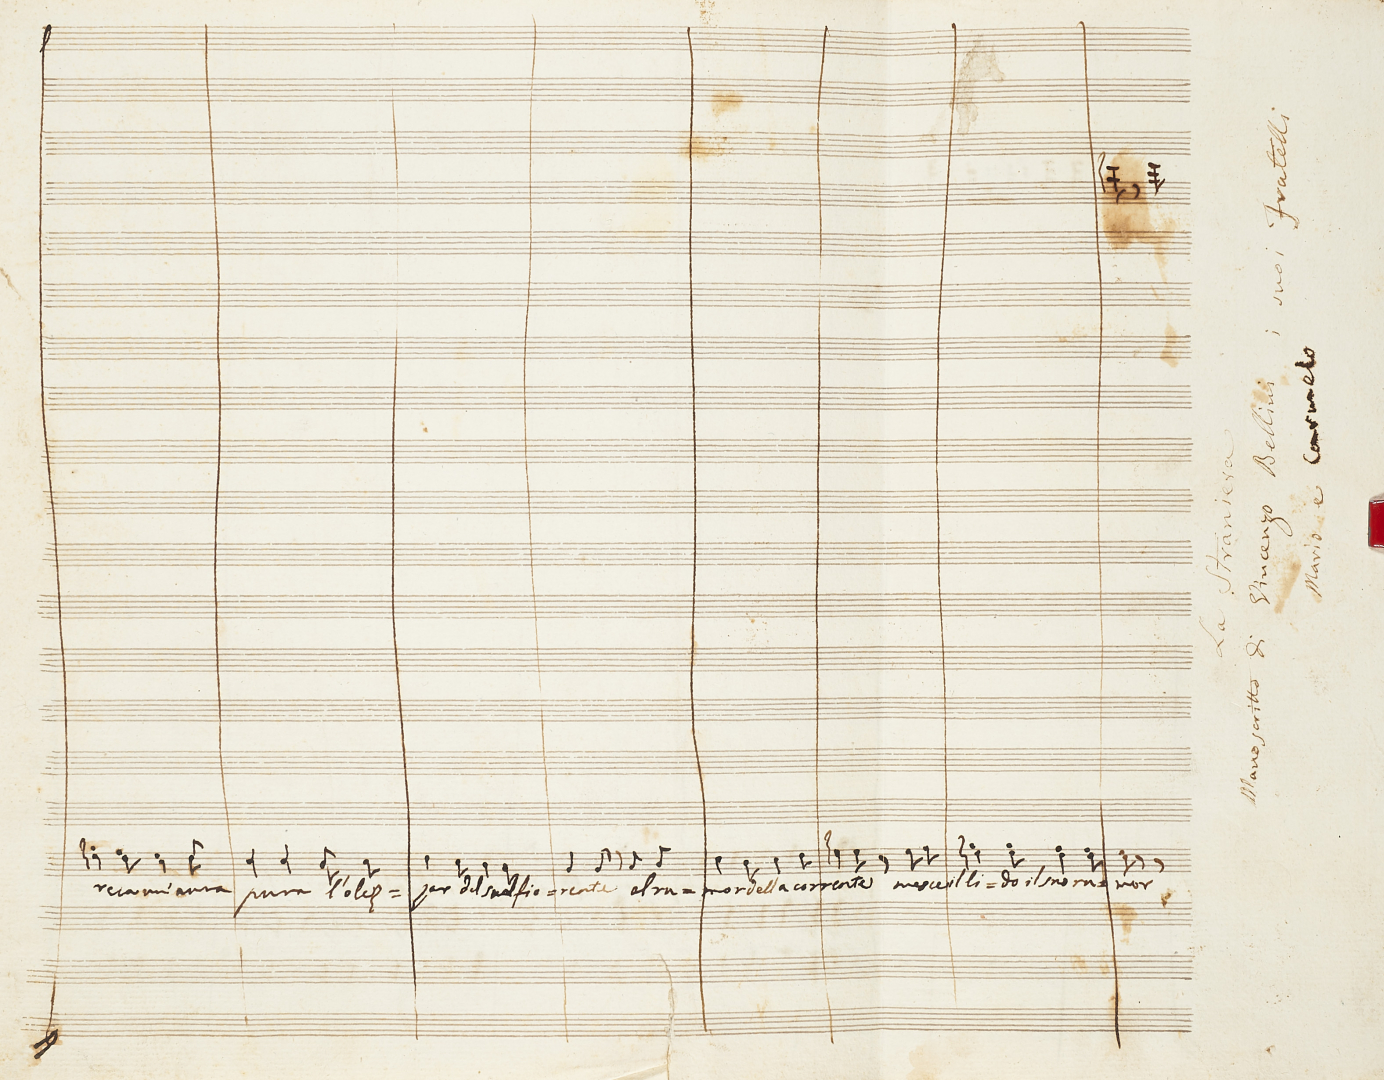 reca un' aura pura l'olez= zar del suol fio=rente el ru=mor della corrente mesce il li=do il suo ru=mor
La Straniera
Manoscritto di Vincenzo Bellini i suoi Fratelli
Mario e Carmelo